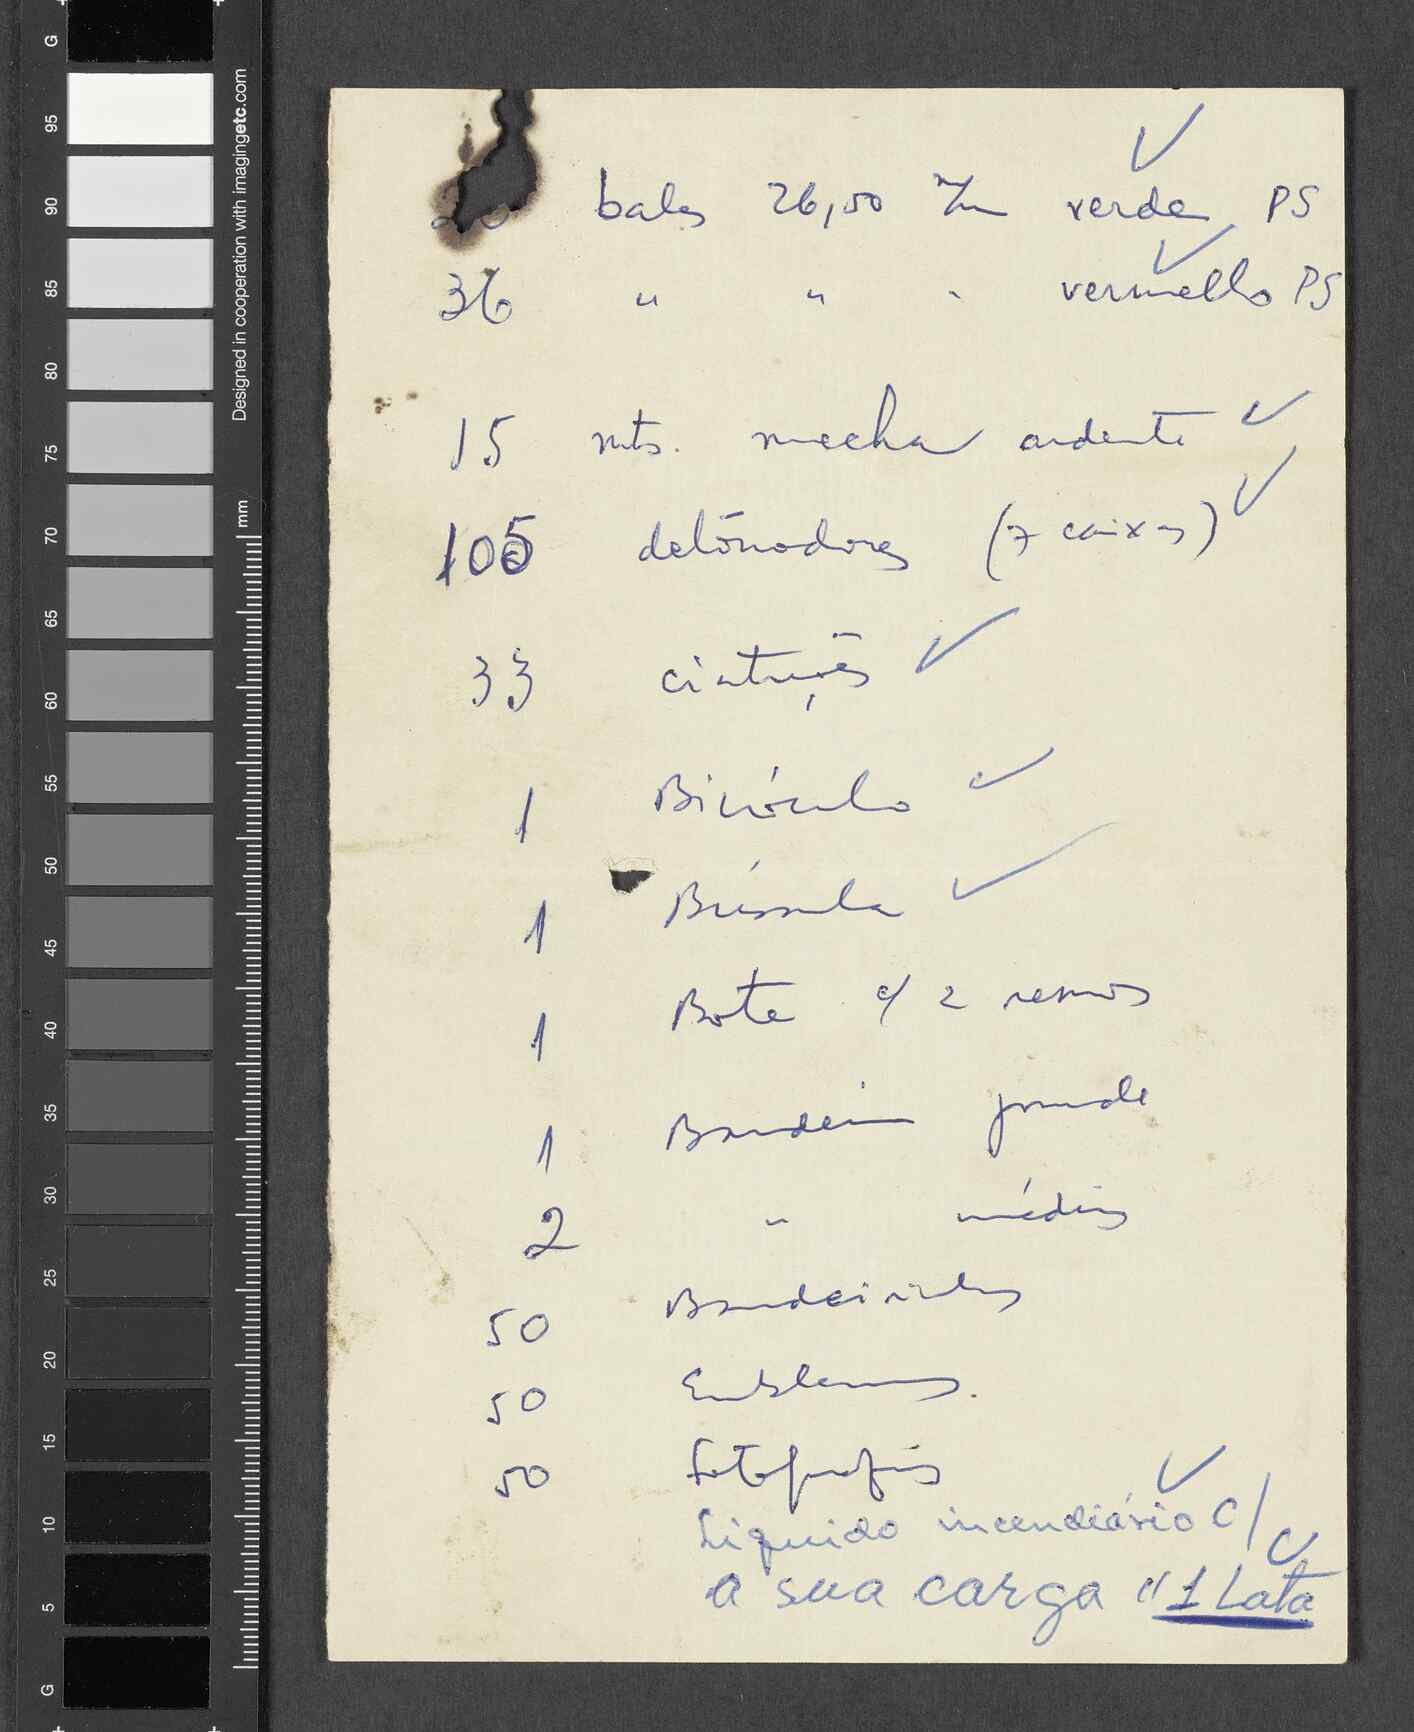 G
95
90
85
80
75
70
65
60
55
50
45
40
35
30
25
20
15
10
5
G
Designed in cooperation with imagingetc.com
mm
balas 26,50 m/m verde PS
36 " " " vermelho PS
15 mts. mecha ardente
105 detonadores (7 caixas)
33 cinturões
1 Binóculo
1 Bússula
1 Bote c/ 2 remos
1 Bandeira grande
2 " médias
50 Bandeirinhas
50 Emblemas.
50 Fotografias
Liquido incendiário C/
a sua carga "1 Lata